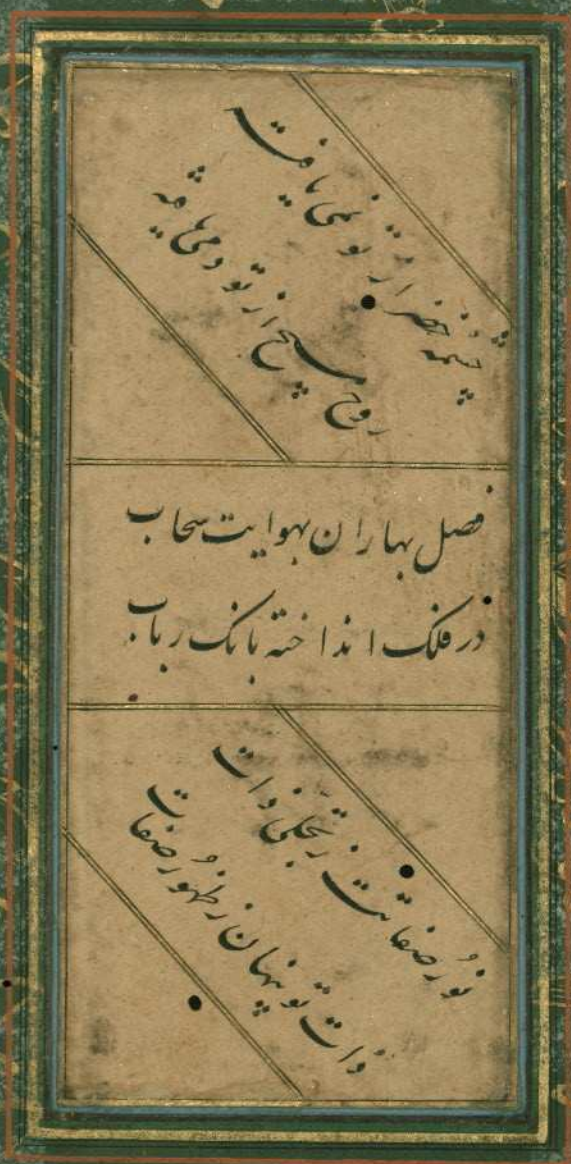 چشمه خضر از تو نمی یافته
روح مسیح از تو دمی یافته
فصل بهاران بهوایت سحاب
در فلک انداخته بانک رباب
نور صفاتت ز تجلی ذات
ذات تو پنهان ز ظهور صفات